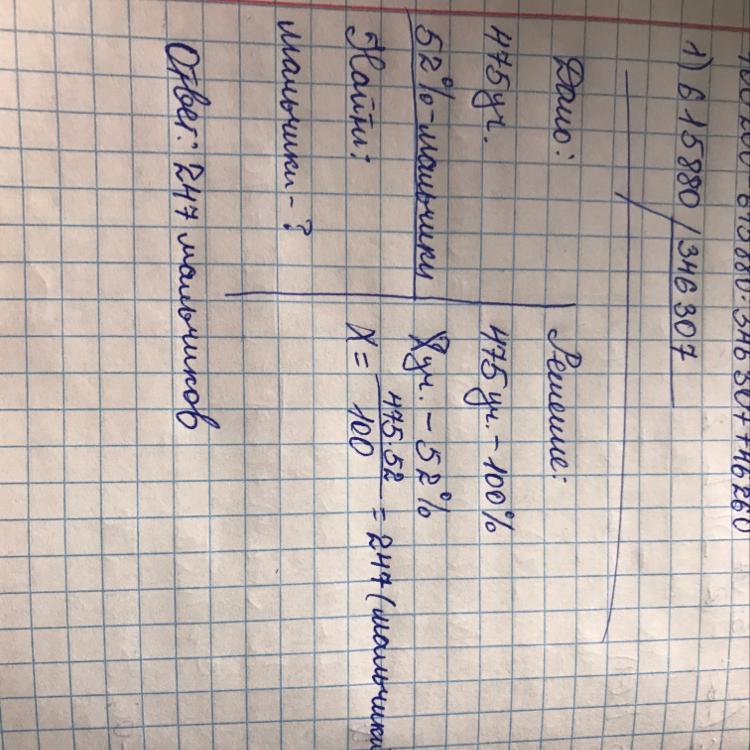 1) 615880 / 346307
Дано:
475 уч.
52% - мальчики
Найти:
мальчики - ?
Решение:
475 уч. - 100%
X уч. - 52%
X = 475·52 / 100 = 247 (мальчики
Ответ: 247 мальчиков